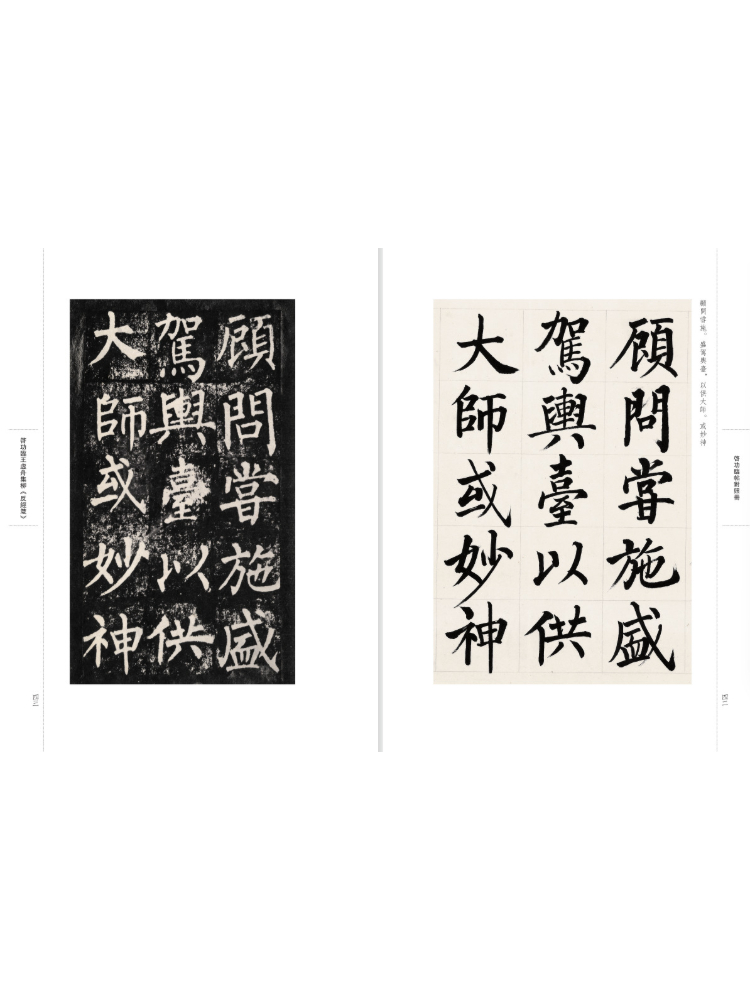 啓功臨帖對照冊
顧問嘗施。盛駕輿臺。以供大師。或妙神
顧問甞施盛
駕輿臺以供
大師或妙神
顧問甞施盛
駕輿臺以供
大師或妙神
啓功臨王集柳